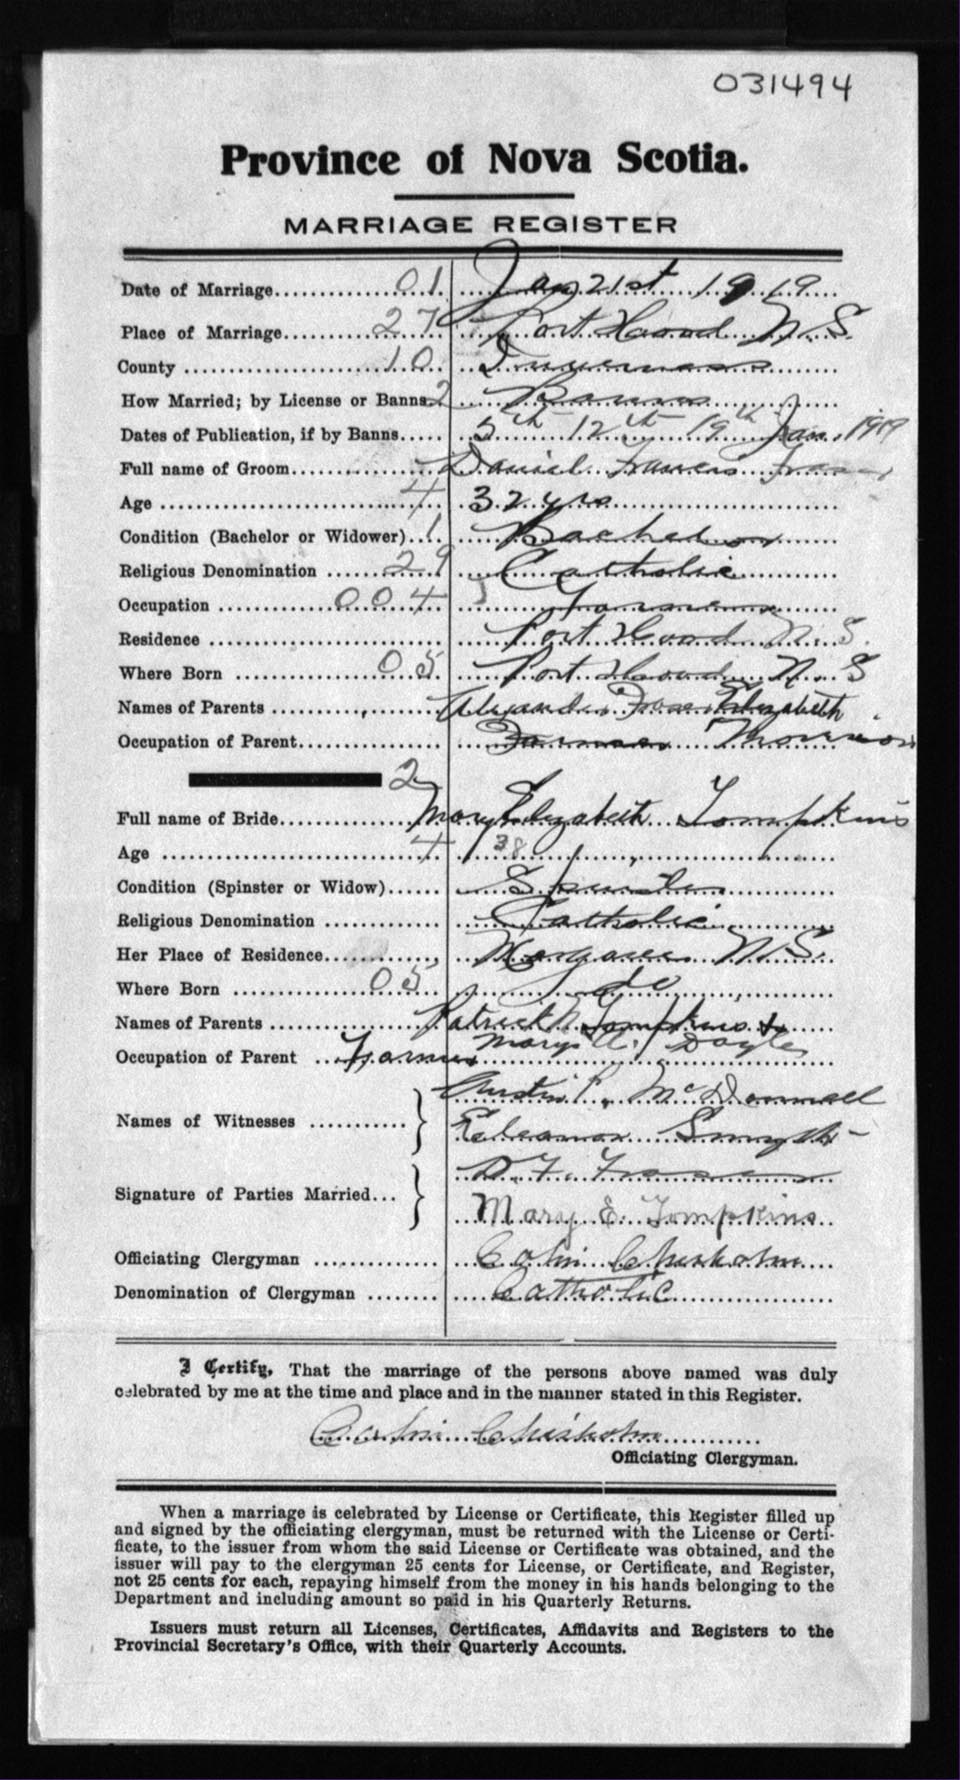 031494
Province of Nova Scotia.
MARRIAGE REGISTER
Date of Marriage 01 Jan 21st 1919
Place of Marriage 27 Port Hood N.S.
County 10 Inverness
How Married; by License or Banns 2 Banns
Dates of Publication, if by Banns 5th 12th 19th Jan. 1919
Full name of Groom Daniel Francis Fraser
Age 4 32 yrs
Condition (Bachelor or Widower) 1 Bachelor
Religious Denomination 29 Catholic
Occupation 004 Farmer
Residence Port Hood N.S.
Where Born 05 Port Hood N.S
Names of Parents Alexander Fraser Elizabeth
Occupation of Parent Farmer Morrison
2
Full name of Bride Mary Elizabeth Tompkins
Age 4 38
Condition (Spinster or Widow) Spinster
Religious Denomination Catholic
Her Place of Residence Margaree N.S.
Where Born 05 do
Names of Parents Patrick Tompkins &
Mary A. Doyle
Occupation of Parent Farmer
Names of Witnesses } Austin P. McDonnell
Eleanor Smyth
Signature of Parties Married } D. F. Fraser
Mary E. Tompkins
Officiating Clergyman Colin Chisholm
Denomination of Clergyman Catholic
I Certify, That the marriage of the persons above named was duly
celebrated by me at the time and place and in the manner stated in this Register.
Colin Chisholm
Officiating Clergyman.
When a marriage is celebrated by License or Certificate, this Register filled up
and signed by the officiating clergyman, must be returned with the License or Certi-
ficate, to the issuer from whom the said License or Certificate was obtained, and the
issuer will pay to the clergyman 25 cents for License, or Certificate, and Register,
not 25 cents for each, repaying himself from the money in his hands belonging to the
Department and including amount so paid in his Quarterly Returns.
Issuers must return all Licenses, Certificates, Affidavits and Registers to the
Provincial Secretary's Office, with their Quarterly Accounts.